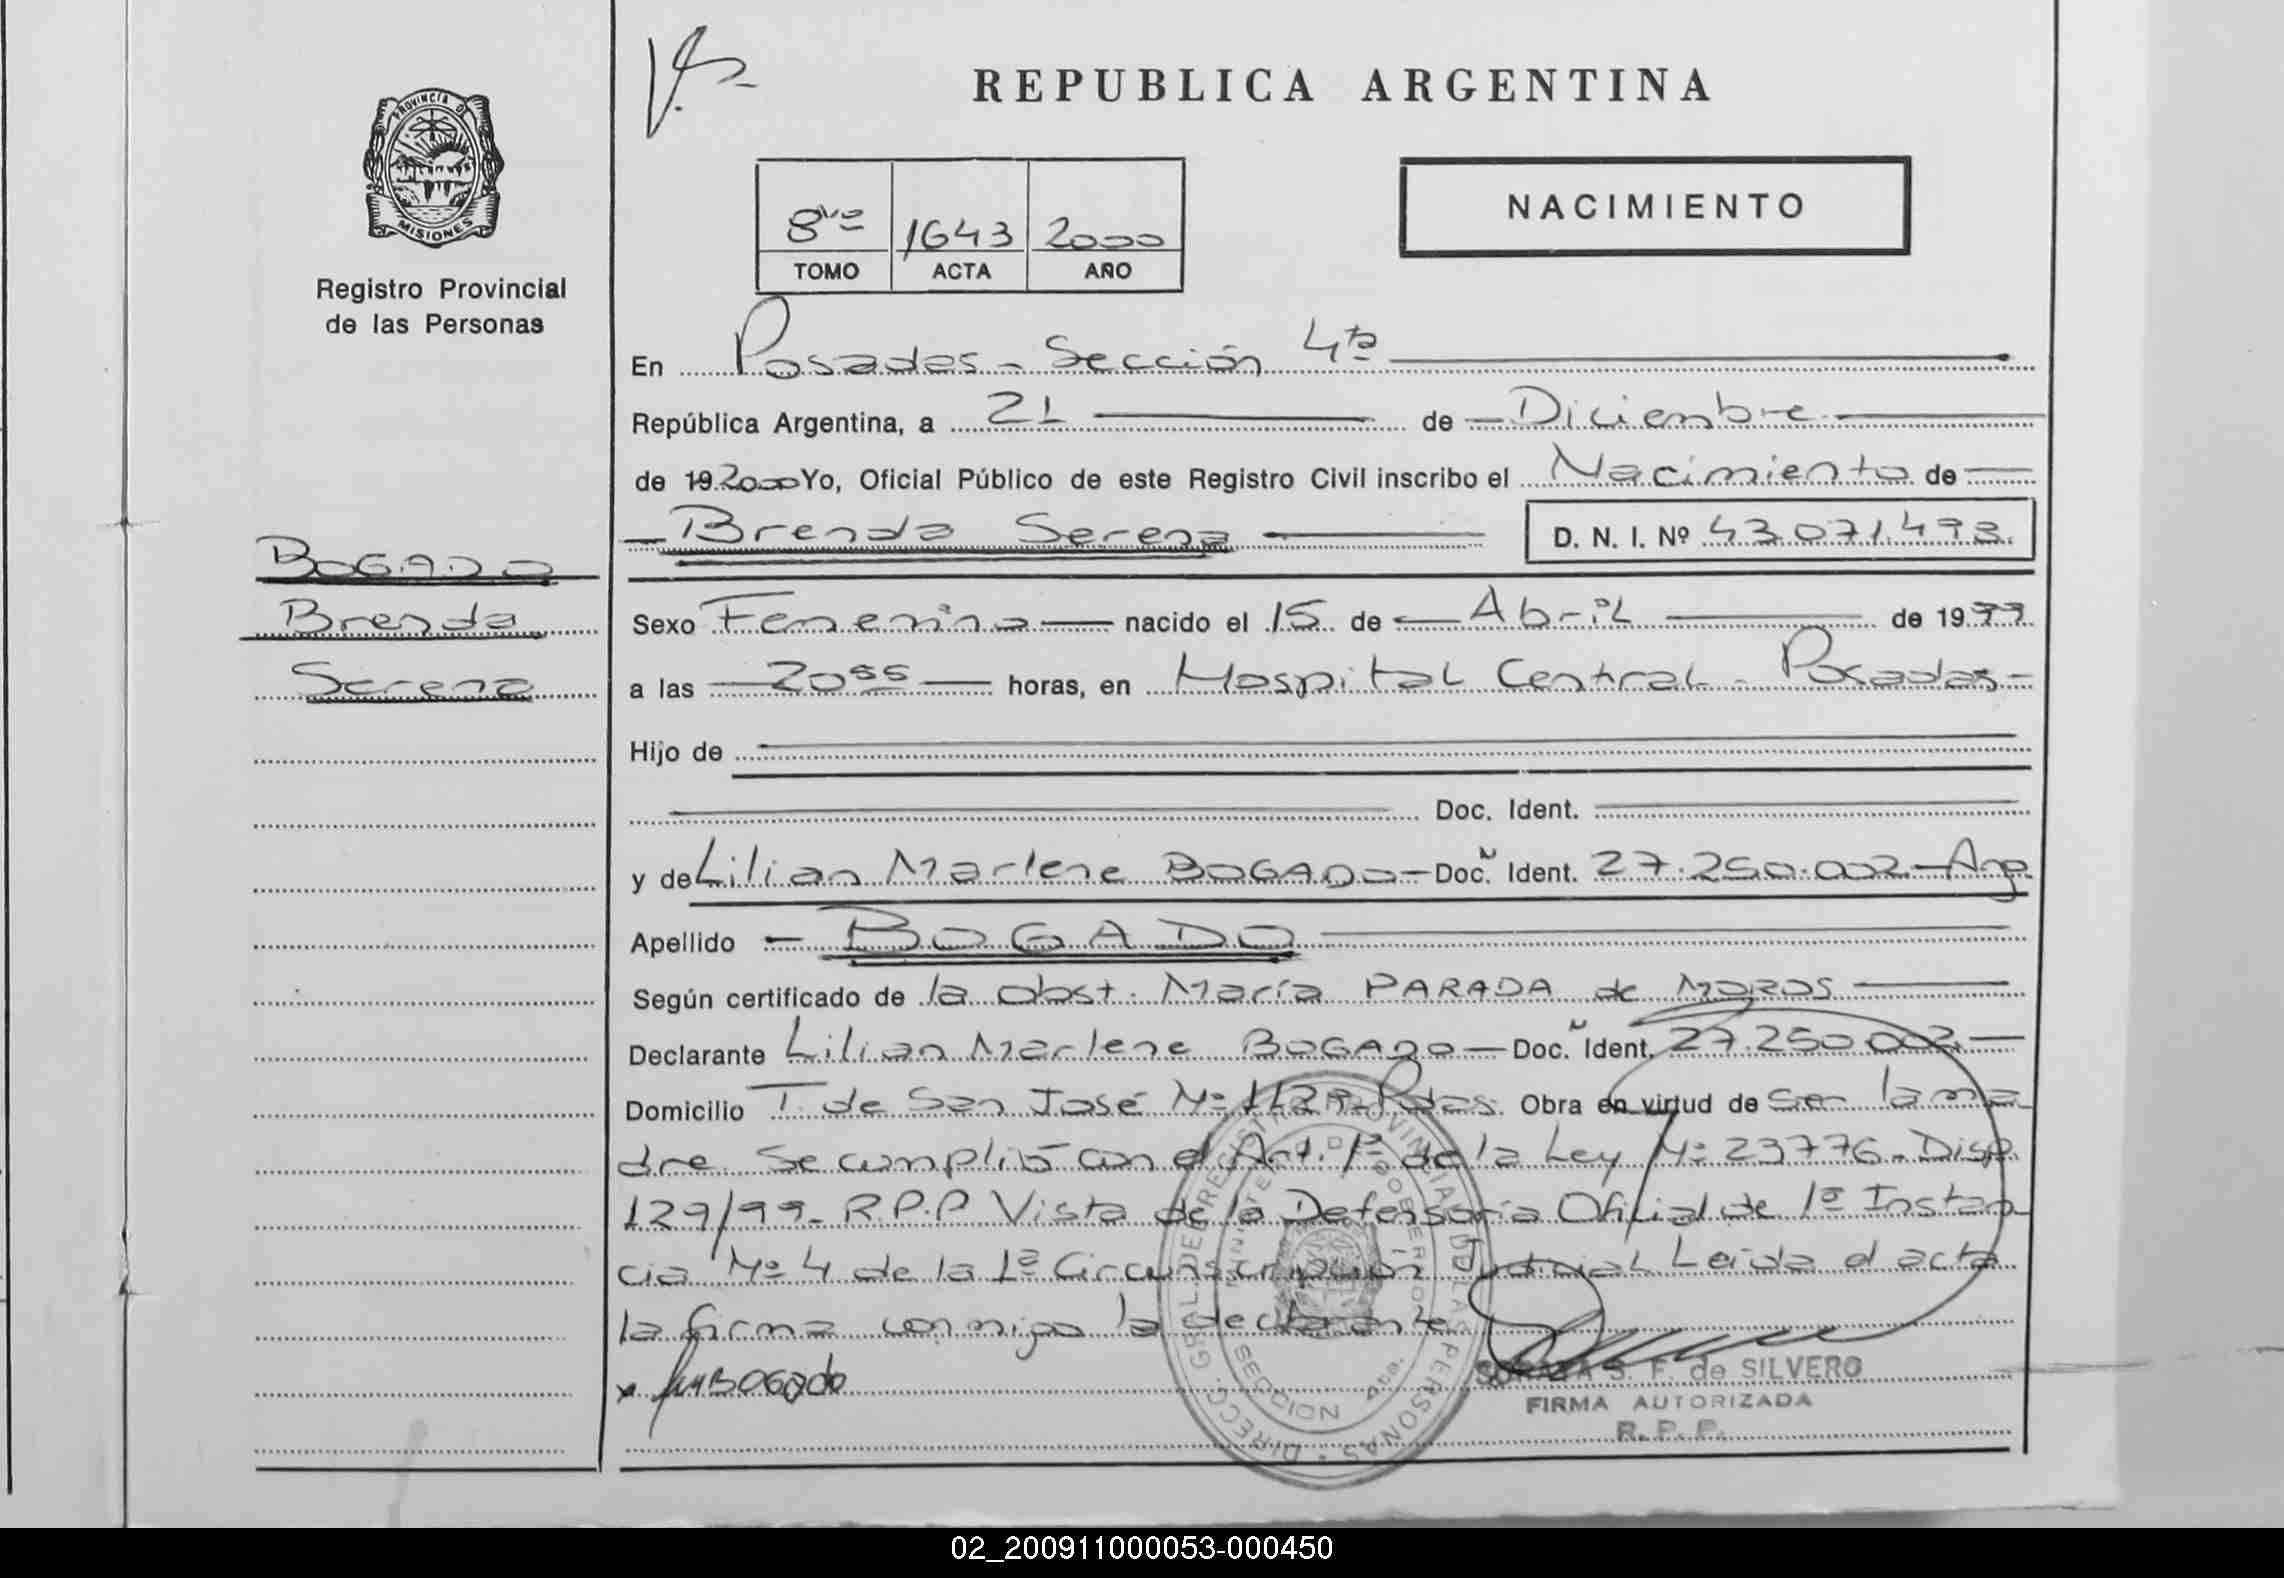 REPUBLICA ARGENTINA
PROVINCIA DE
MISIONES
Registro Provincial
de las Personas
8vo 1643 2000
TOMO ACTA AÑO
NACIMIENTO
En Posadas - Sección 4ta
República Argentina, a 21 de Diciembre
de 19 2000 Yo, Oficial Público de este Registro Civil inscribo el Nacimiento de
Brenda Serena
D. N. I. Nº 43.071.493.
BOGADO
Brenda
Serena
Sexo Femenino nacido el 15 de Abril de 1999
a las 20 55 horas, en Hospital Central - Posadas -
Hijo de
Doc. Ident.
y de Lilian Marlene BOGADO - Doc. Ident. 27.250.002 - Arg
Apellido - BOGADO
Según certificado de la obst. María PARADA de MOROS
Declarante Lilian Marlene BOGADO - Doc. Ident. 27.250.002. -
Domicilio T. de San José Nº Pdas. Obra en virtud de ser la ma
dre. Se cumplió con el Art. 1º de la Ley Nº 23776 - Disp.
129/99 - R.P.P Vista de la Defensoría Oficial de 1º Instan
cia Nº 4 de la 1ª Circunscripción Judicial Leída el acta
la firma conmigo la declarante
x BOGado
DIRECC. GRAL DE REGISTRO PROVINCIAL DE LAS PERSONAS
SECCION 4ta.
S. F. de SILVERO
FIRMA AUTORIZADA
R. P. P.
02_200911000053-000450